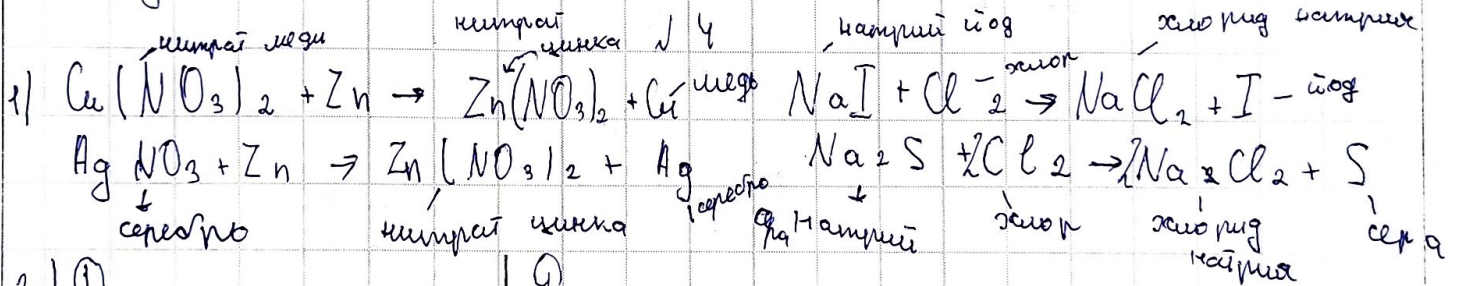 нитрат меди нитрат цинка №4 натрий йод хлорид натрия
1) Cu(NO3)2 + Zn → Zn(NO3)2 + Cu медь NaI + Cl2 - хлор → NaCl2 + I - йод
AgNO3 + Zn → Zn(NO3)2 + Ag Na2S + 2Cl2 → 2Na2Cl2 + S
серебро нитрат цинка серебро натрий хлор хлорид натрия сера